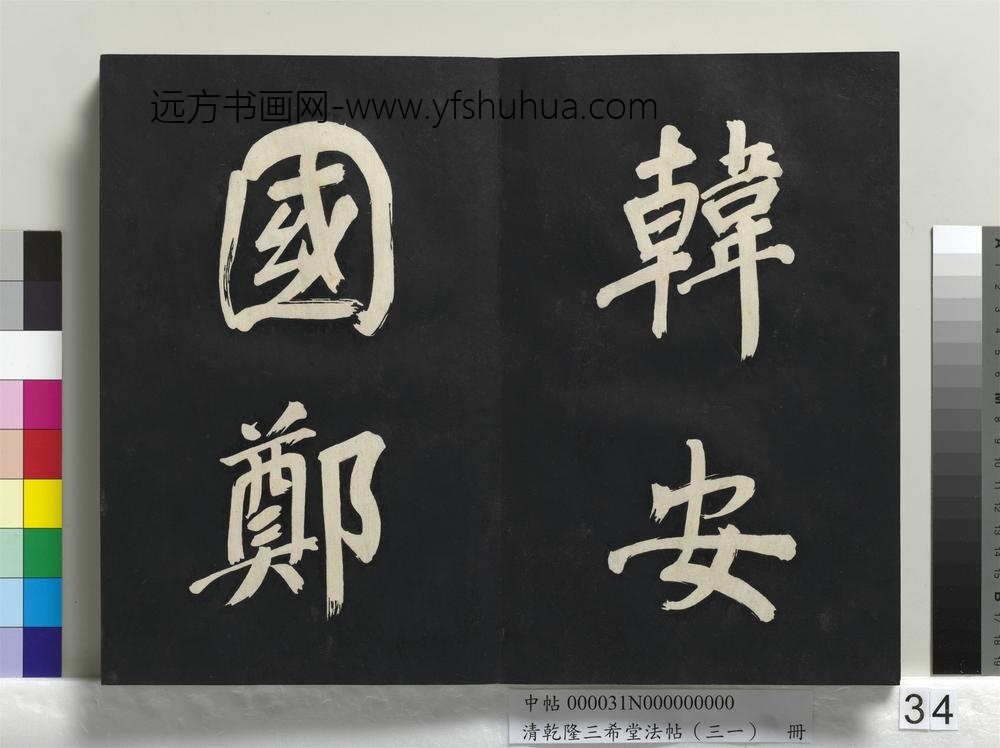 远方书画网-www.yfshuhua.com
韓安
國鄭
中帖 000031N000000000
清乾隆三希堂法帖（三一） 冊
34